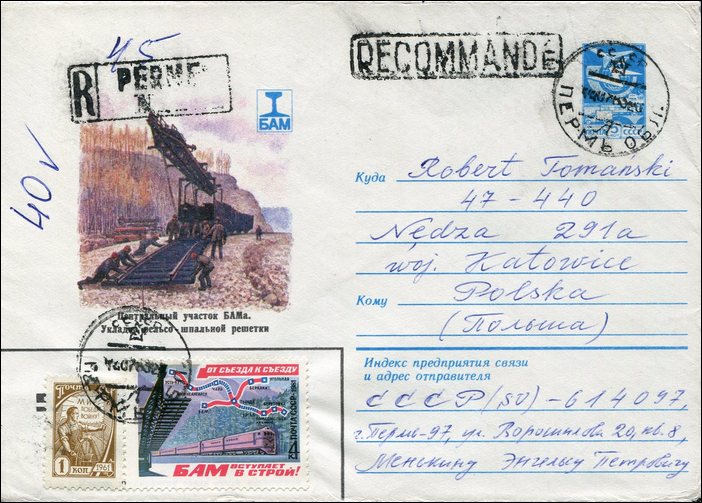 45
RECOMMANDÉ
R PERM
БАМ
40 v
ПЕРМЬ
Куда Robert Tomański
47-440
Nędza 291a
woj. Katowice
Кому Polska
(Польша)
Центральный участок БАМа.
Укладка рельсо-шпальной решетки
Индекс предприятия связи
и адрес отправителя
СССР (SU) - 614097,
г. Пермь-97, ул. Ворошилова 20, кв. 8,
Менькину Энгельсу Петровичу
ПОЧТА
1
КОП
1961
ОТ СЪЕЗДА К СЪЕЗДУ
БАМ
ПОЧТА СССР · 1981
БАМ ВСТУПАЕТ
В СТРОЙ!